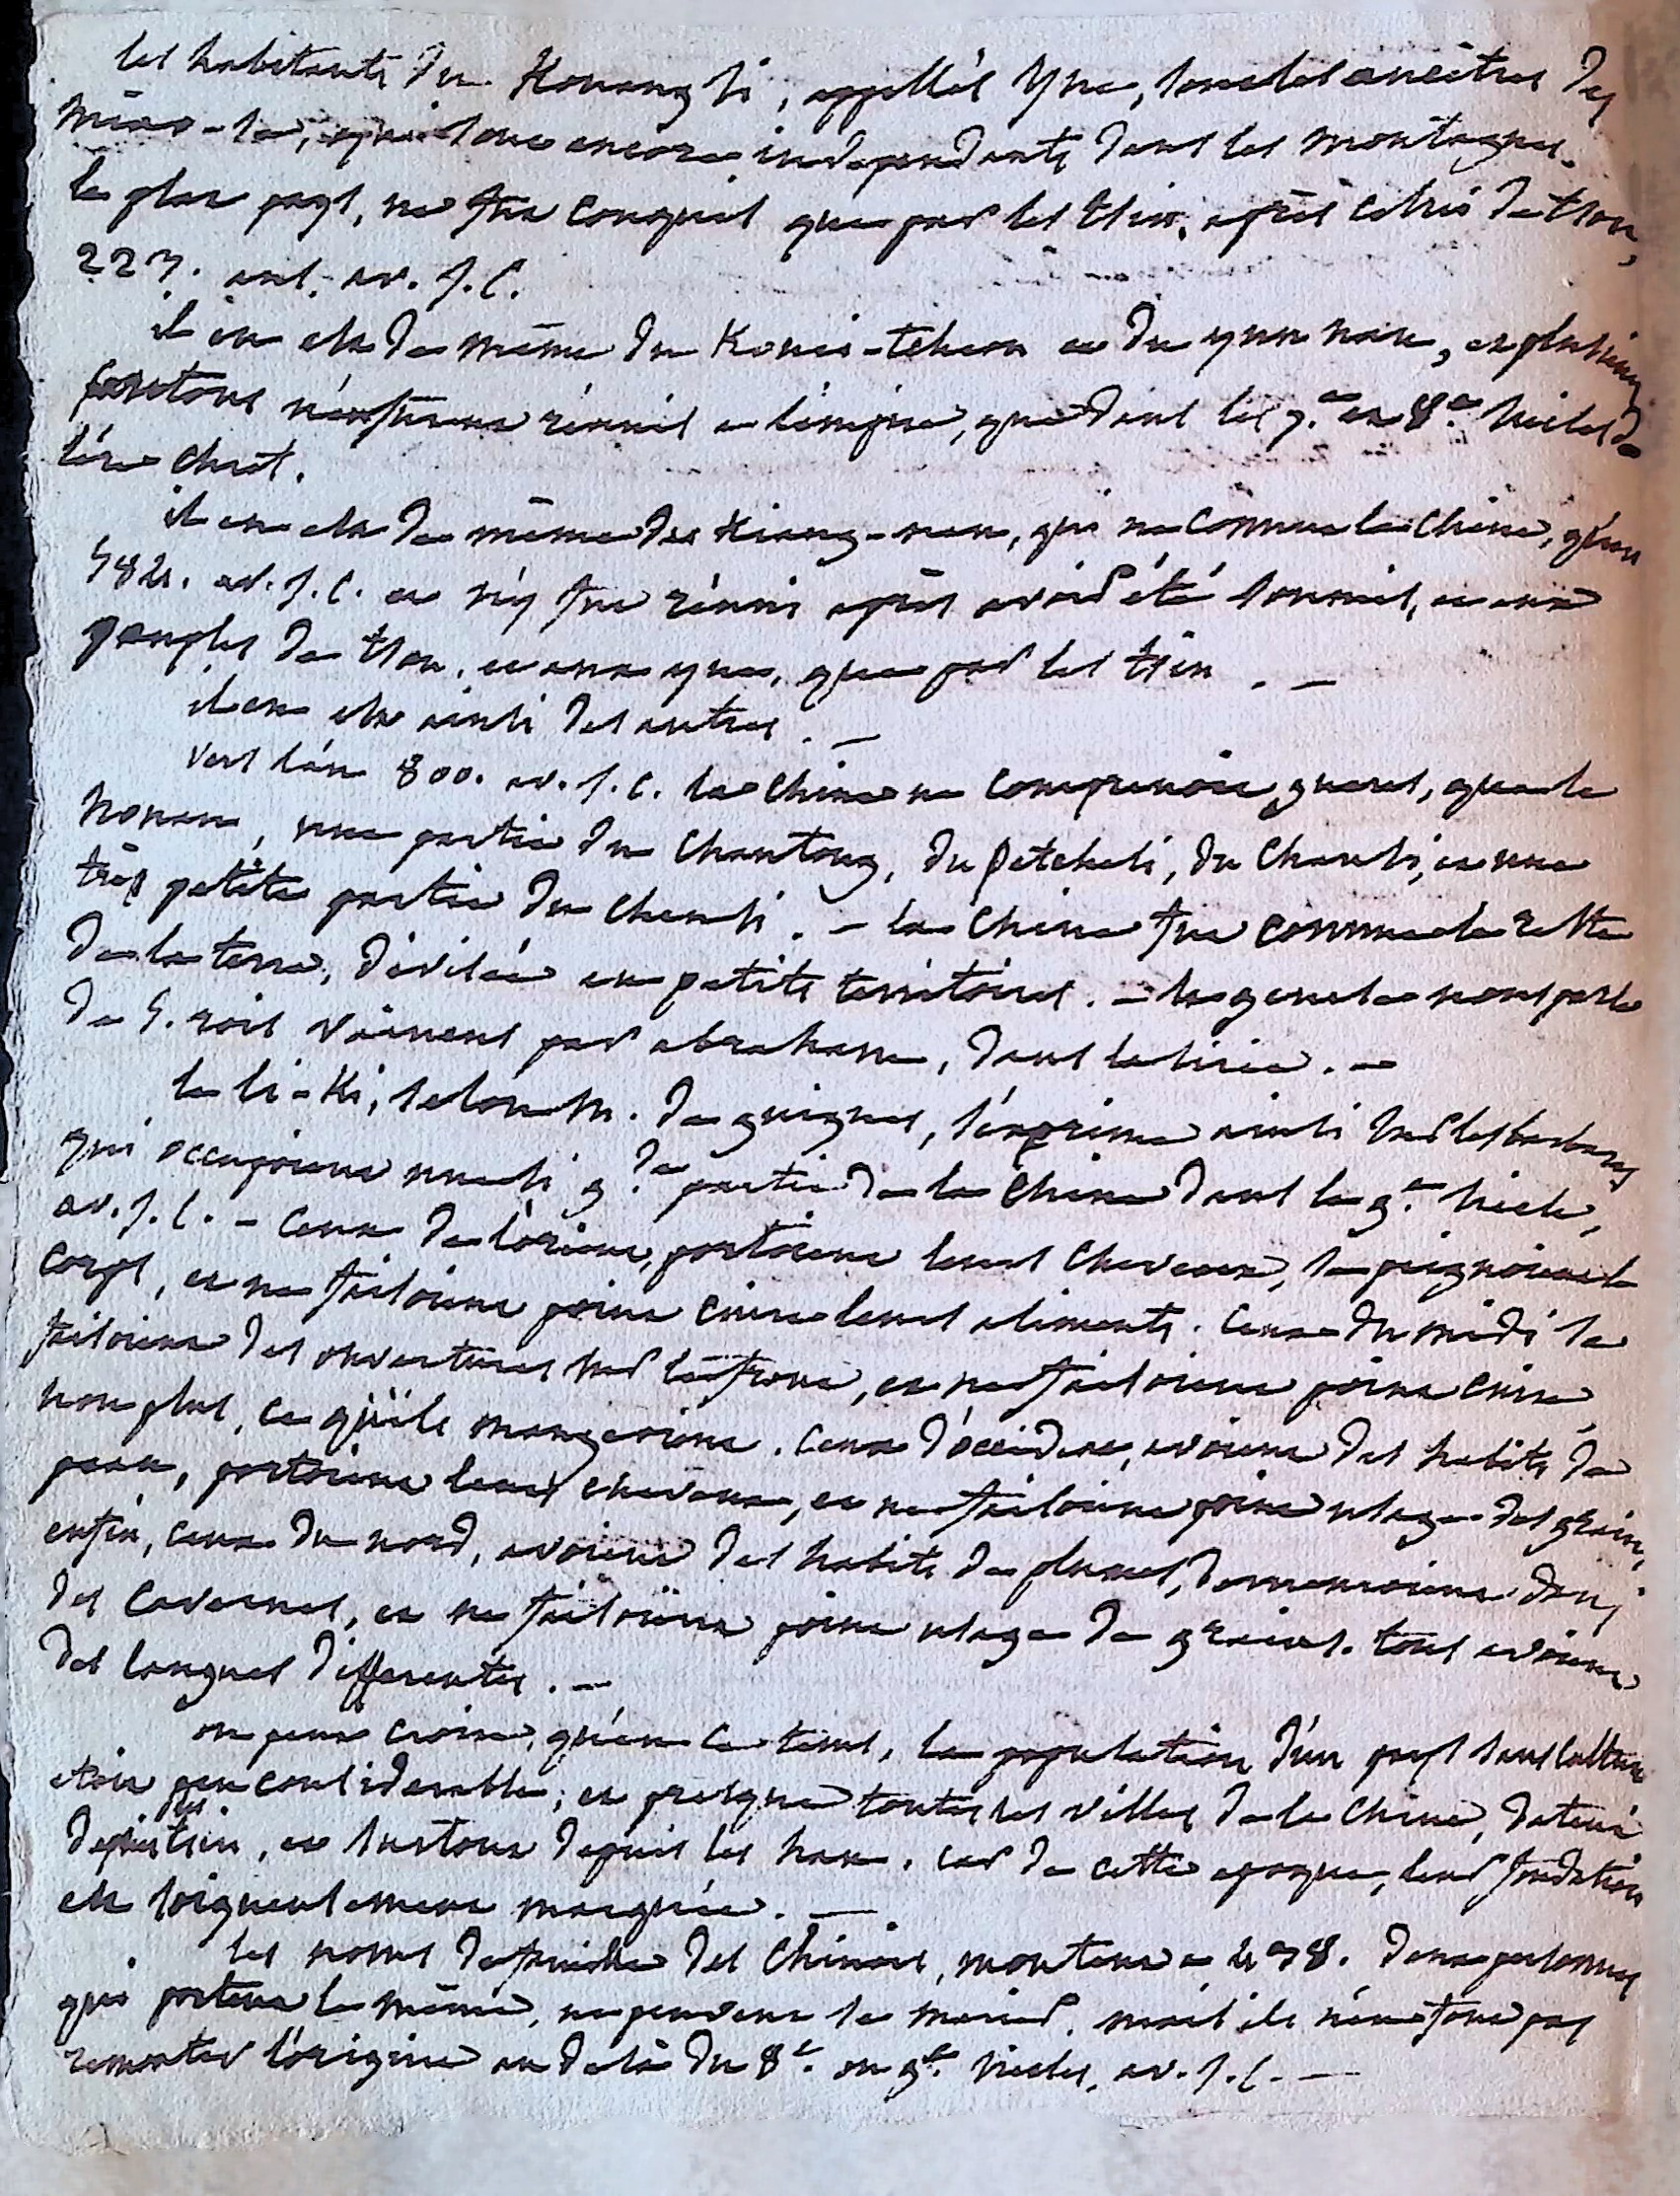 les habitants du Kouang si, appellés yue, sont les ancêtres des
miao-tse, qui sont encore independants dans les montagnes.
le plat pays, ne fut conquis que par les tsin, après celui de tsou,
223. ans. av. J. C.
il en est de même du Kouei-tcheou et du yun nan, et plusieurs
cantons n'en furent réunis a l'empire, que dans les 7.e et 8.e siecles de
l'ére chret.
il en est de même du Kiang-nan, qui ne connut la Chine, qu'en
584. av. J. C. et n'y fut réuni après avoir été soumis, et aux
peuples de tsou, et aux yue, que par les tsin. —
il en est ainsi des autres. —
vers l'an 800. av. J. C. la Chine ne comprenoit gueres, que le
honan, une partie du Chantong, du petcheli, du Chansi, et une
très petite partie du Chensi. — la Chine fut comme le reste
de la terre, divisée en petits territoires. — la genese nous parle
de 5. rois vaincus par abraham, dans la sirie. —
le li-Ki, selon M. de guignes, s'exprime ainsi sur les barbares
qui occupoient une si g.de partie de la Chine dans le 9.e siecle,
av. J. C. — Ceux de l'orient, portoient leurs cheveux, se peignoient le
corps, et ne faisoient point cuire leurs aliments. Ceux du midi se
faisoient des ouvertures sur le front, et ne faisoient point cuire
non plus, ce qu'ils mangeoient. Ceux d'occident, avoient des habits de
peau, portoient leurs cheveux, et ne faisoient point usage des grains,
enfin, ceux du nord, avoient des habits de plumes, demeuroient dans
des cavernes, et ne faisoient point usage de grains. tous avoient
des langues differentes. —
on peut croire, qu'en ce tems, la population d'un pays sans culture
etoit peu considerable; et presque toutes les villes de la Chine, datent
depuis les tsin, et surtout depuis les han. car de cette epoque, leur fondation
est soigneusement marquée. —
les noms de famille des Chinois, montent a 478. deux personnes
qui portent le même, ne peuvent se marier. mais ils n'en font pas
remonter l'origine au delà du 8.e ou 9.e siecles, av. J. C. —